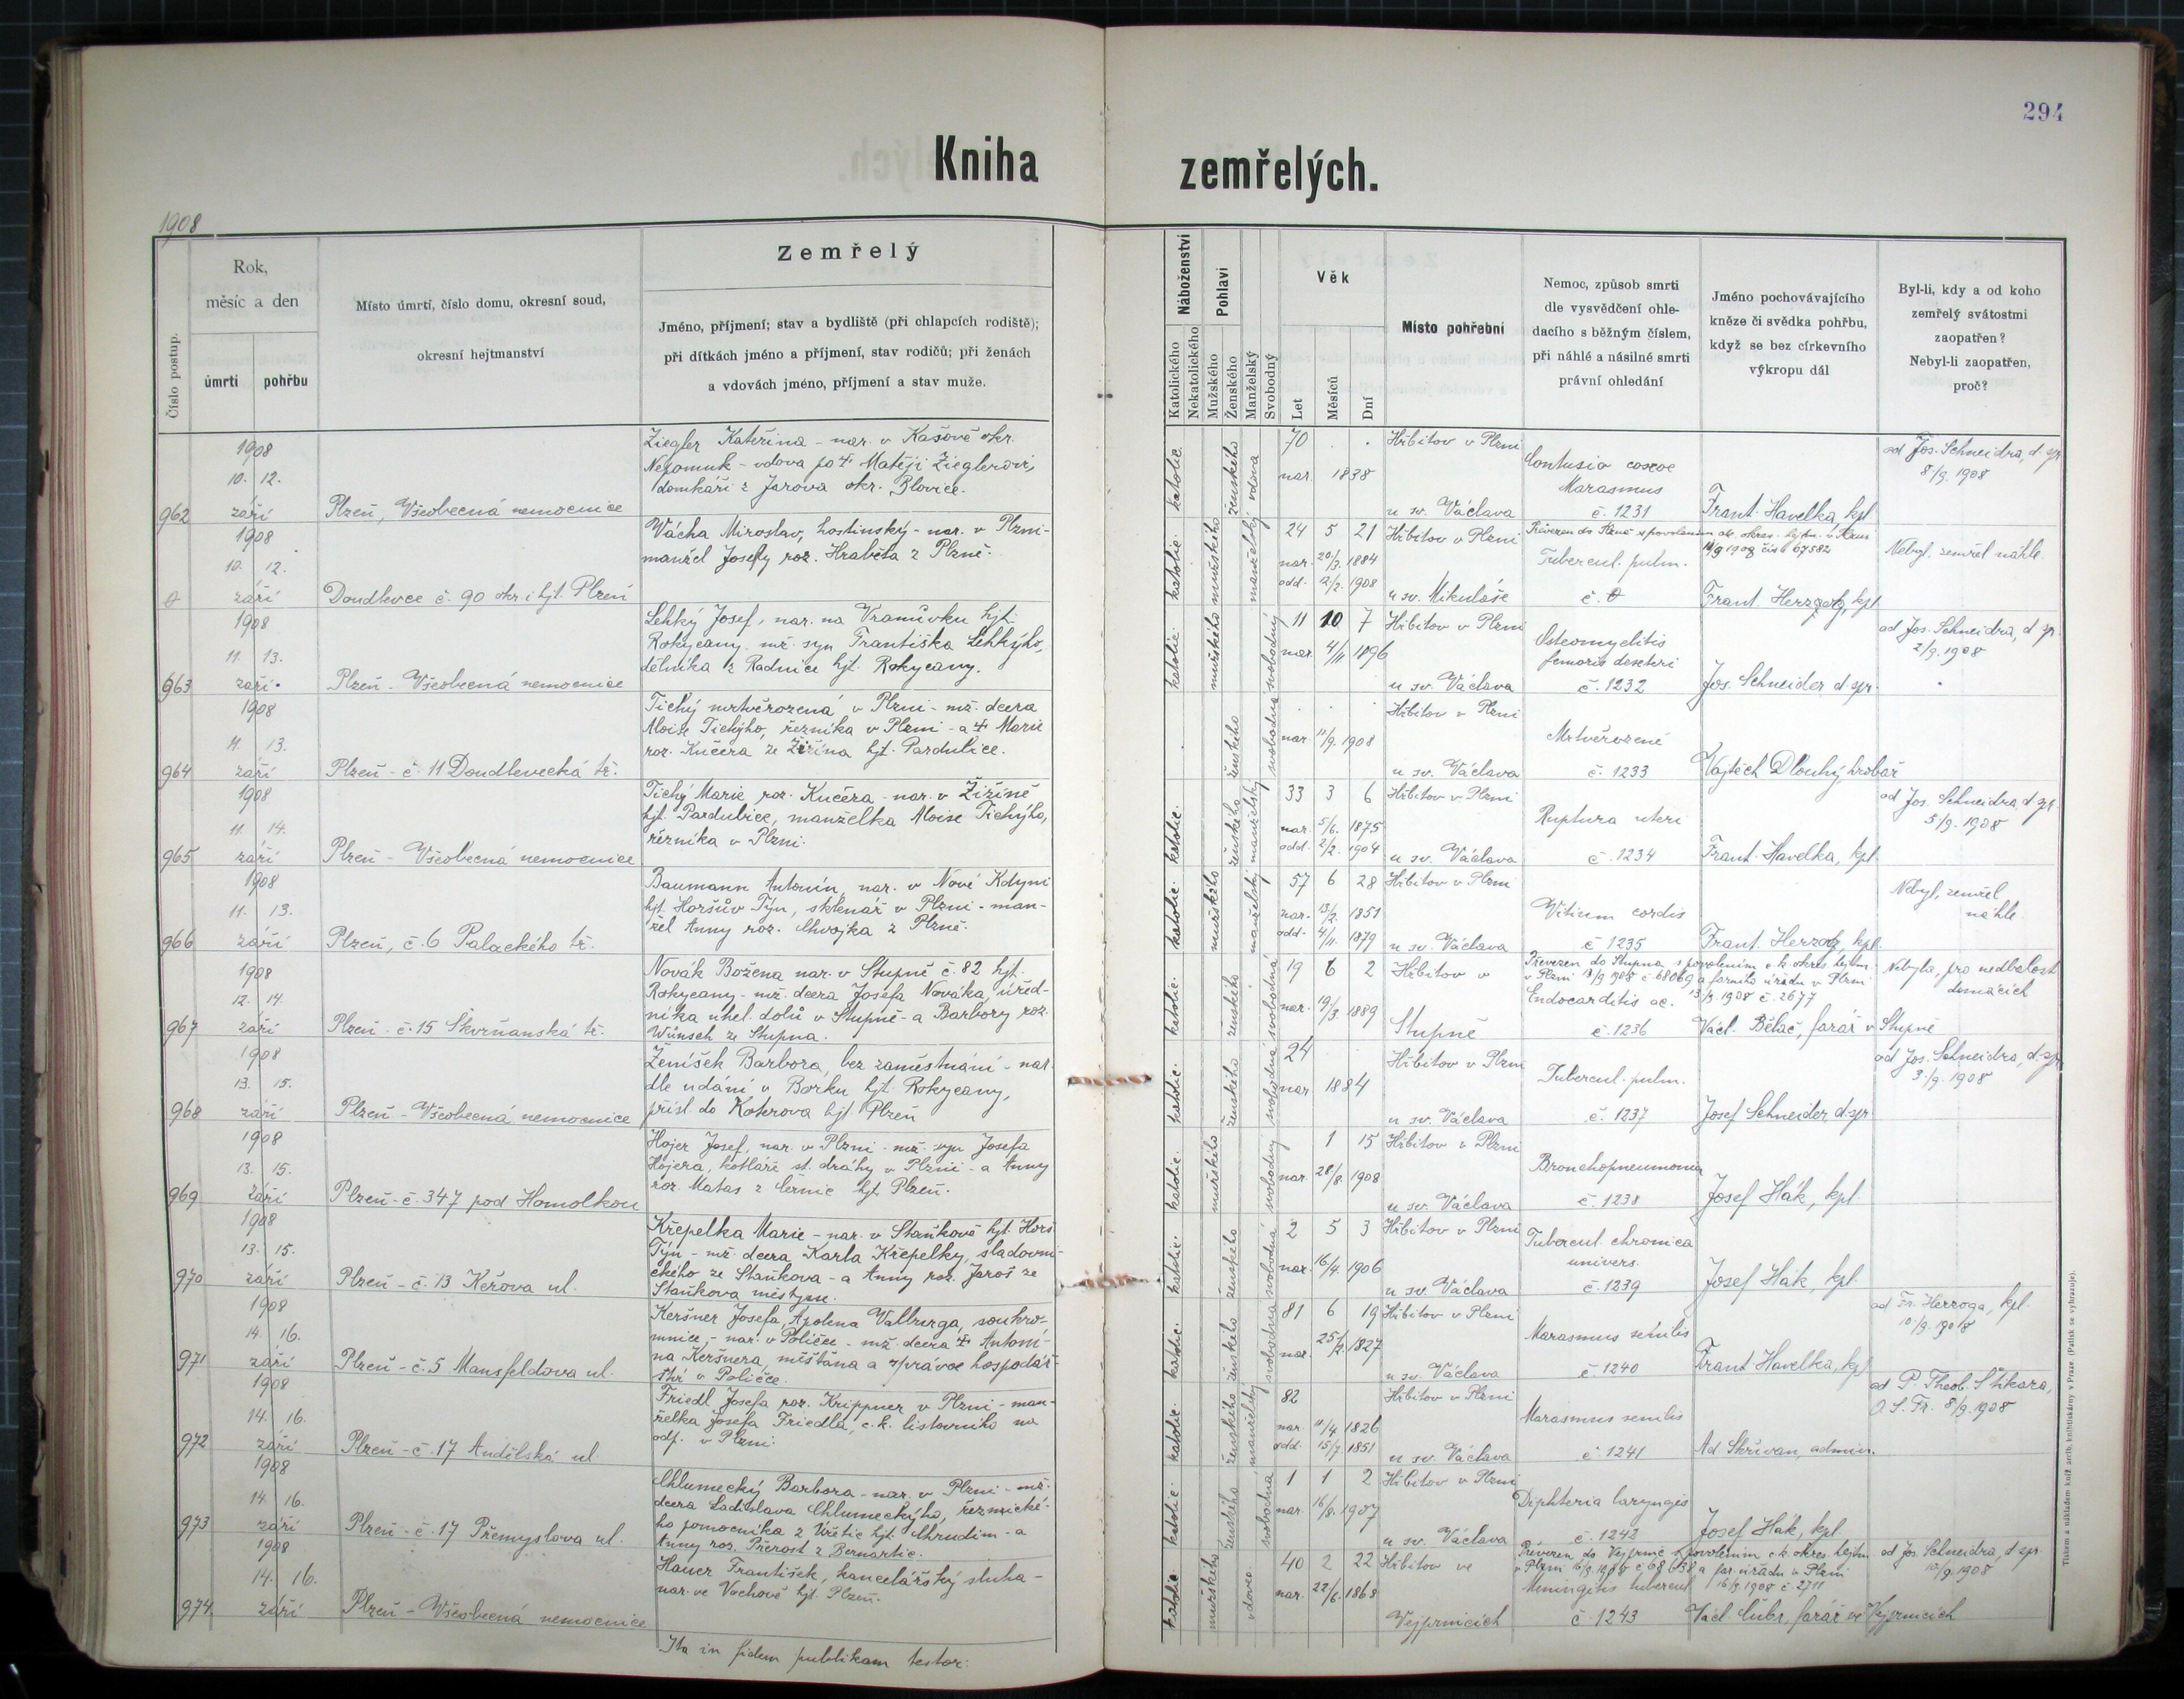 294
Kniha zemřelých.
1908
Číslo postup.
Rok,
měsíc a den
úmrtí
pohřbu
Místo úmrtí, číslo domu, okresní soud,
okresní hejtmanství
Zemřelý
Jméno, příjmení; stav a bydliště (při chlapcích rodiště);
při dítkách jméno a příjmení, stav rodičů; při ženách
a vdovách jméno, příjmení a stav muže.
Náboženství
Katolického
Nekatolického
Pohlaví
Mužského
Ženského
Manželský
Svobodný
Věk
Let
Měsíců
Dní
Místo pohřební
Nemoc, způsob smrti
dle vysvědčení ohle-
dacího s běžným číslem,
při náhlé a násilné smrti
právní ohledání
Jméno pochovávajícího
kněze či svědka pohřbu,
když se bez církevního
výkropu dál
Byl-li, kdy a od koho
zemřelý svátostmi
zaopatřen?
Nebyl-li zaopatřen,
proč?
962
1908
10. 12.
září
Plzeň, Všeobecná nemocnice
Ziegler Kateřina - nar. v Kašově okr.
Nepomuk - vdova po † Matěji Zieglerovi,
domkáři z Jarova okr. Blovice.
katolic.
ženského
vdova
70 . .
nar. 1838
Hřbitov v Plzni
u sv. Václava
Contusio coxae
Marasmus
č. 1231
Frant. Havelka, kpl.
od Jos. Schneidra, d. spr.
8./9. 1908
0
1908
10. 12.
září
Doudlevce č. 90 okr. i hjt. Plzeň
Vácha Miroslav, hostinský - nar. v Plzni -
manžel Josefy roz. Hraběta z Plzně.
katolic.
mužského
manželský
24 5 21
nar. 20/3. 1884
odd. 2/2. 1908
Hřbitov v Plzni
u sv. Mikuláše
Tubercul. pulm.
č. 0
Frant. Herzog, kpl.
Nebyl, zemřel náhle.
963
1908
11. 13.
září
Plzeň - Všeobecná nemocnice
Lehký Josef, nar. na Vranůvku hjt.
Rokycany mž. syn Františka Lehkýho,
dělníka z Radnice hjt. Rokycany.
katolic.
mužského
svobodný
11 10 7
nar. 4/11 1896
Hřbitov v Plzni
u sv. Václava
Osteomyelitis
femoris dexteri
č. 1232
Jos. Schneider d. spr.
od Jos. Schneidra, d. spr.
2/9. 1908
964
1908
11. 13.
září
Plzeň - č. 11 Doudlevecká tř.
Tichý mrtvěrozená v Plzni - mž. dcera
Aloise Tichýho, řezníka v Plzni - a † Marie
roz. Kučera ze Žižína hjt. Pardubice.
ženského
svobodná
nar. 11/9. 1908
Hřbitov v Plzni
u sv. Václava
Mrtvěrozené
č. 1233
Vojtěch Dlouhý hrobař
965
1908
11. 14.
září
Plzeň - Všeobecná nemocnice
Tichý Marie roz. Kučera - nar. v Žižíně
hjt. Pardubice, manželka Aloise Tichýho,
řezníka v Plzni.
katolic.
ženského
manželský
33 3 6
nar. 5/6. 1875
odd. 2/2. 1904
Hřbitov v Plzni
u sv. Václava
Ruptura uteri
č. 1234
Frant. Havelka, kpl.
od Jos. Schneidra d. spr.
5/9. 1908
966
1908
11. 13.
září
Plzeň, č. 6 Palackého tř.
Baumann Antonín, nar. v Nové Kdyni
hjt. Horšův Týn, sklenář v Plzni - man-
žel Anny roz. Chvojka z Plzně.
katolic.
mužského
manželský
57 6 28
nar. 13/2. 1851
odd. 4/11. 1879
Hřbitov v Plzni
u sv. Václava
Vitium cordis
č. 1235
Frant. Herzog, kpl.
Nebyl, zemřel
náhle.
967
1908
12. 14.
září
Plzeň - č. 15 Skvrňanská tř.
Novák Božena nar. v Stupně č. 82 hjt.
Rokycany - mž. dcera Josefa Nováka, úřed-
níka uhel. dolů v Stupně - a Barbory roz.
Wünsch ze Stupna.
katolic.
ženského
svobodná
19 6 2
nar. 19/3. 1889
Hřbitov v
Stupně
Převezen do Stupna s povolením c. k. okres. hejtm.
v Plzni 13/9 1908 č. 68069 a farního úřadu v Plzni
Endocarditis ac. 13/9. 1908 č. 2677
č. 1236
Václ. Bělač, farář v Stupně
Nebyla, pro nedbalost
domácích
968
1908
13. 15.
září
Plzeň - Všeobecná nemocnice
Ženíšek Barbora, bez zaměstnání - nar.
dle udání v Borku hjt. Rokycany,
přísl. do Koterova hjt. Plzeň
katolic.
ženského
svobodná
24
nar. 1884
Hřbitov v Plzni
u sv. Václava
Tubercul. pulm.
č. 1237
Josef Schneider, d. spr
od Jos. Schneidra, d. spr.
3./9. 1908
969
1908
13. 15.
září
Plzeň - č. 347 pod Homolkou
Hojer Josef, nar. v Plzni - mž. syn Josefa
Hojera, kotláře st. dráhy v Plzni - a Anny
roz. Matas z Černic hjt. Plzeň.
katolic.
mužského
svobodný
1 15
nar. 28/8. 1908
Hřbitov v Plzni
u sv. Václava
Bronchopneumonia
č. 1238
Josef Hák, kpl.
970
1908
13. 15.
září
Plzeň - č. 13 Keřova ul.
Křepelka Marie - nar. v Staňkově hjt. Horš.
Týn - mž. dcera Karla Křepelky, sladovni-
ckého ze Staňkova - a Anny roz. Jaroš ze
Staňkova městyse.
katolic.
ženského
svobodná
2 5 3
nar. 16/4. 1906
Hřbitov v Plzni
u sv. Václava
Tubercul. chronica
univers.
č. 1239
Josef Hák, kpl.
971
1908
14. 16.
září
Plzeň - č. 5 Mansfeldova ul.
Keršner Josefa, Apolena Valburga, soukro-
mnice, - nar. v Poličce - mž. dcera † Antoní-
na Keršnera, měšťana a správce hospodář-
ství v Poličce.
katolic.
ženského
svobodná
81 6 19
nar. 25/2. 1827
Hřbitov v Plzni
u sv. Václava
Marasmus senilis
č. 1240
Frant. Havelka, kpl
od Fr. Herzoga, kpl.
10/9. 1908
972
1908
14. 16.
září
Plzeň - č. 17 Andělská ul
Friedl Josefa roz. Krippner v Plzni - man-
želka Josefa Friedla, c. k. listovního na
odp. v Plzni.
katolic.
ženského
manželský
82
nar. 11/4 1826
odd. 15/7. 1851
Hřbitov v Plzni
u sv. Václava
Marasmus senilis
č. 1241
Ad. Skřivan, admin.
od P. Theob. Stikara,
O. S. Fr. 8/9. 1908
973
1908
14. 16.
září
Plzeň - č. 17 Přemyslova ul.
Chlumecký Barbora - nar. v Plzni - mž.
dcera Ladislava Chlumeckýho, řeznické-
ho pomocníka z Úřetic hjt. Chrudim - a
Anny roz. Přerost z Bernartic.
katolic.
ženského
svobodná
1 1 2
nar. 16/8. 1907
Hřbitov v Plzni
u sv. Václava
Diphteria laryngis
č. 1242
Josef Hák, kpl.
974
1908
14. 16.
září
Plzeň - Všeobecná nemocnice
Hauer František, kancelářský sluha -
nar. ve Vochově hjt. Plzeň.
katolic.
mužského
vdovec
40 2 22
nar. 22/6. 1868
Hřbitov ve
Vejprnicích
Převezen do Vejprnic s povolením c. k. okres. hejtm.
v Plzni 16/9. 1908 č. 68638 a far. úřadu v Plzni
Meningitis tubercul. 16/9. 1908 č. 2711
č. 1243
Václ. Čubr, farář ve Vejprnicích
od Jos. Schneidra, d. spr.
10/9. 1908
Ita in fidem publikam testor:
Tiskem a nákladem kníž. arcib. knihtiskárny v Praze. (Patisk se vyhrazuje).